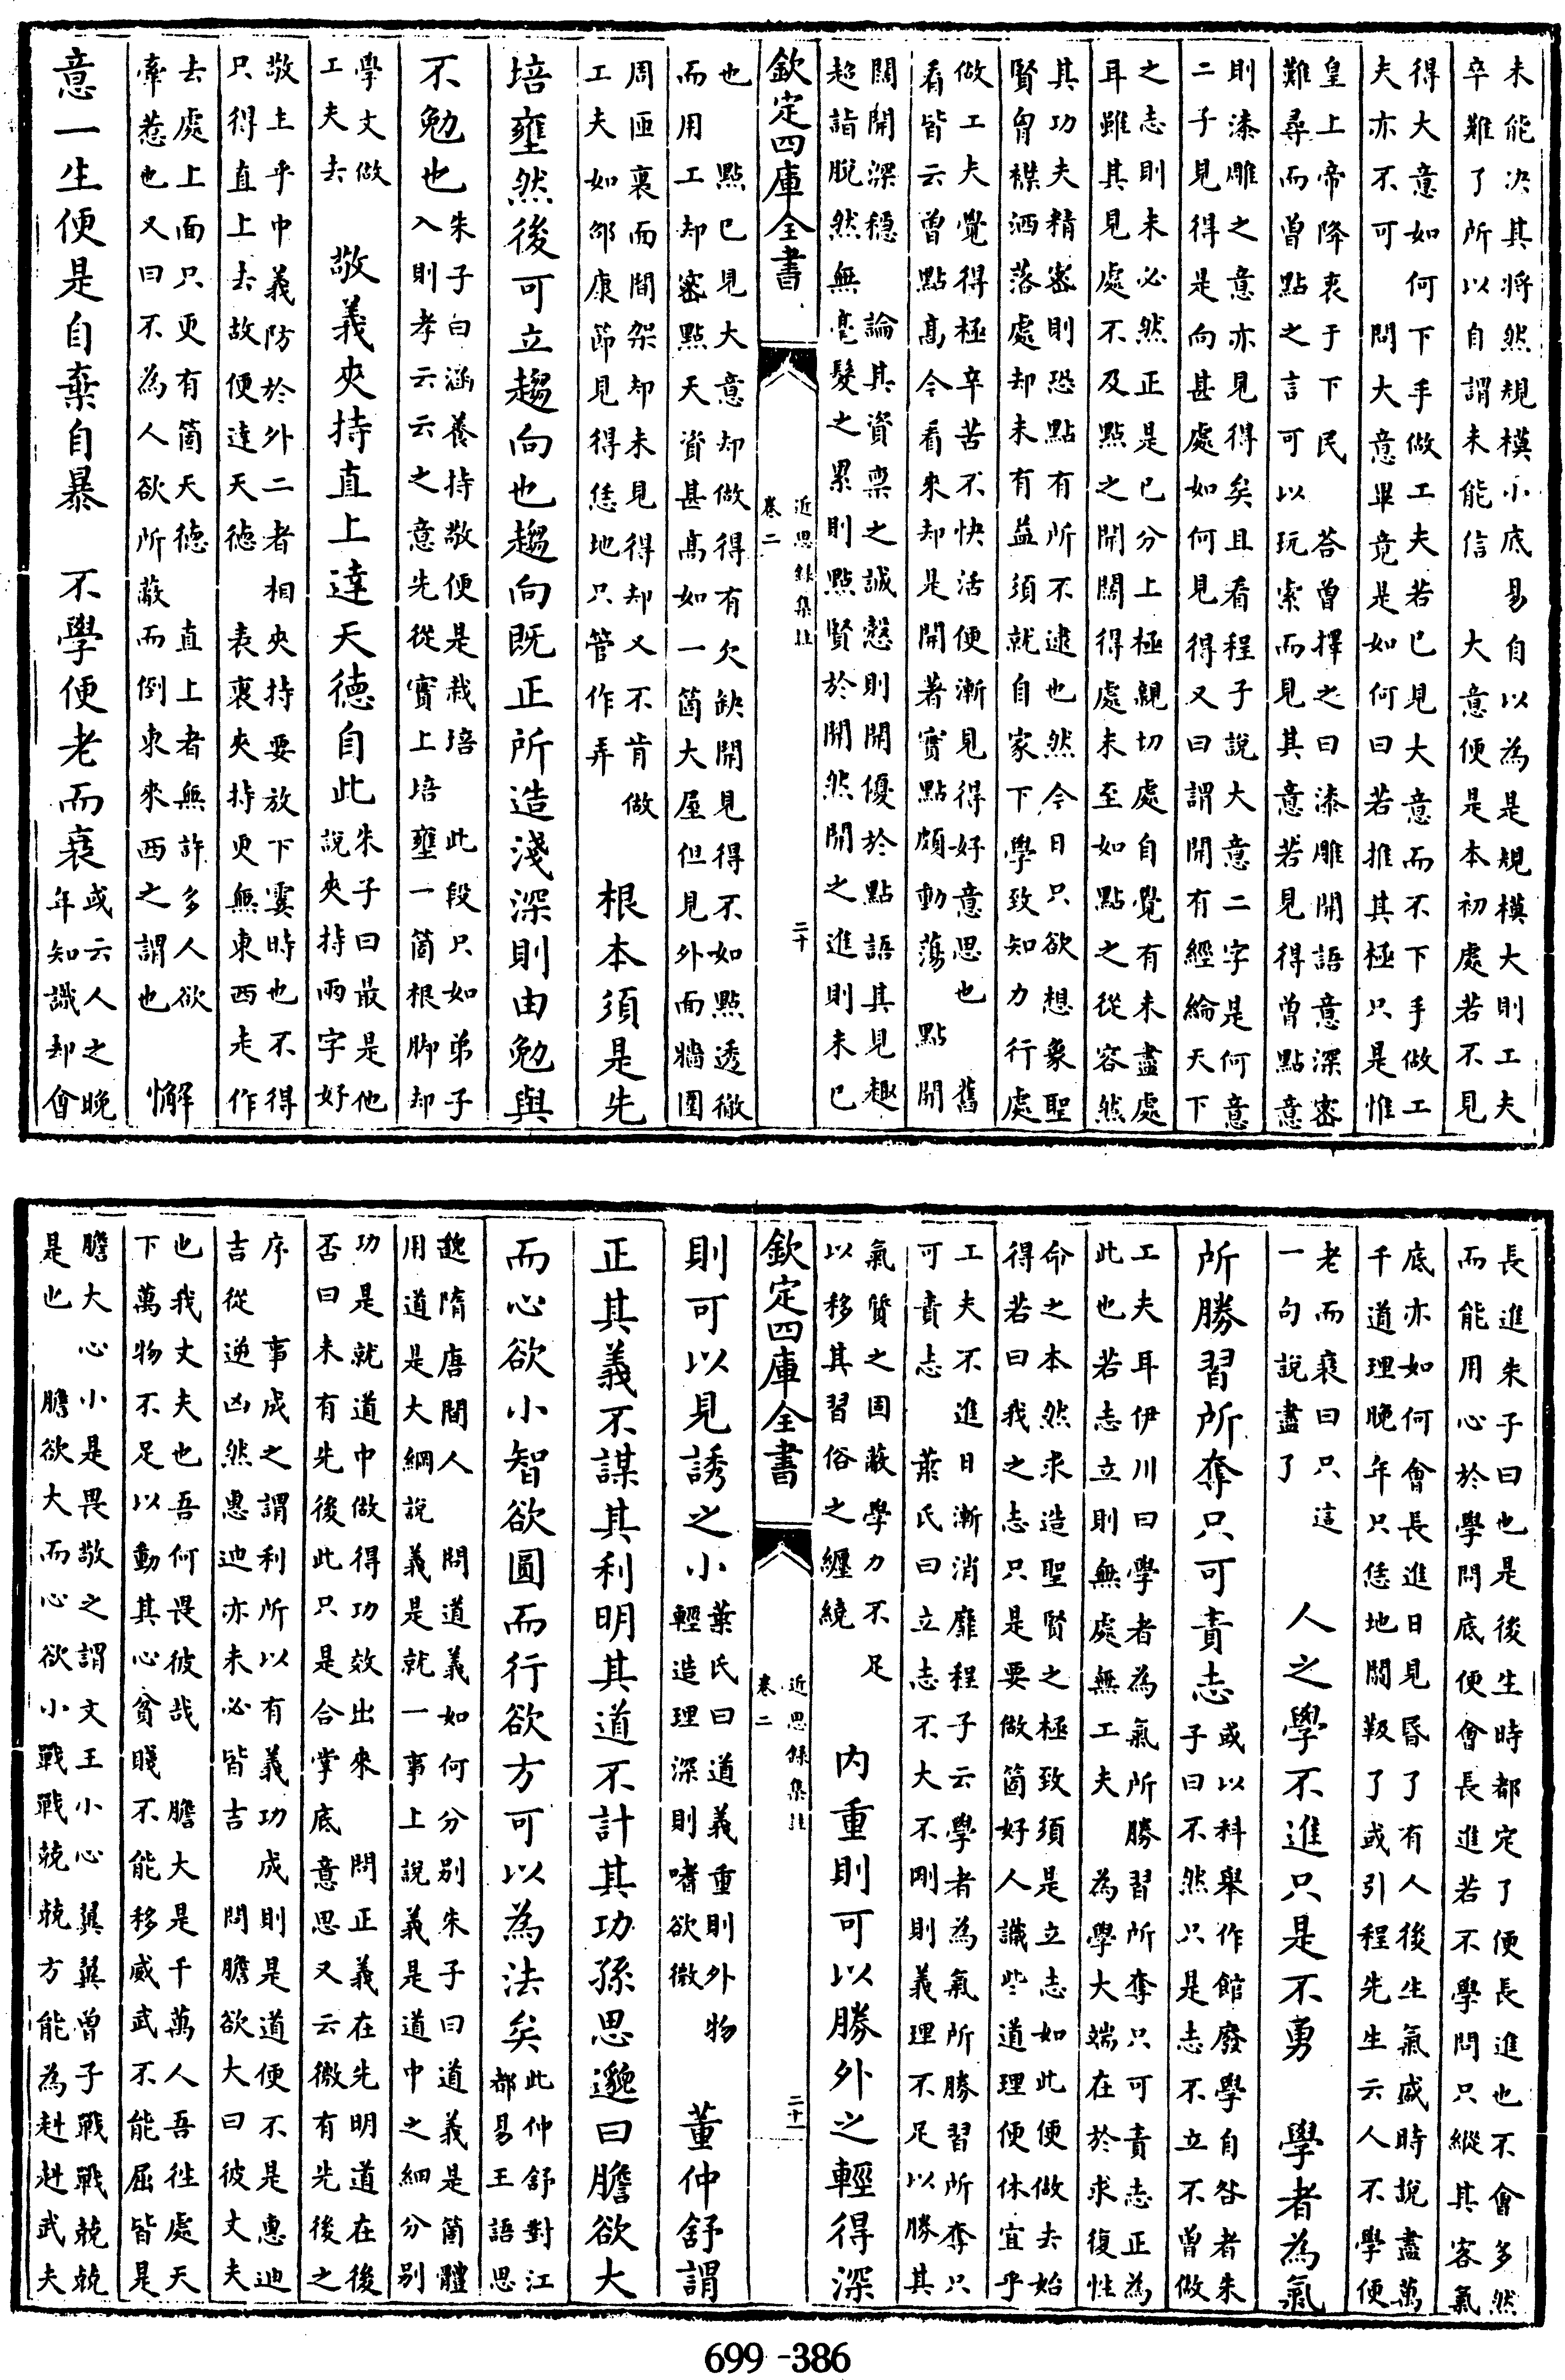 未能决其將然規模小底易自以為是規模大則工夫
卒難了所以自謂未能信　大意便是本初處若不見
得大意如何下手做工夫若已見大意而不下手做工
夫亦不可　問大意畢竟是如何曰若推其極只是惟
皇上帝降衷于下民　答曾擇之曰漆雕開語意深密
難尋而曾點之言可以玩索而見其意若見得曾點意
則漆雕之意亦見得矣且看程子說大意二字是何意
二子見得是向甚處如何見得又曰謂開有經綸天下
之志則未必然正是已分上極親切處自覺有未盡處
耳雖其見處不及點之開闊得處未至如點之從容然
其功夫精密則恐點有所不逮也然今日只欲想象聖
賢胷襟洒落處却未有益須就自家下學致知力行處
做工夫覺得極辛苦不快活便漸見得好意思也　舊
看皆云曾點高今看來却是開著實點頗動蕩　點開
闊開深穩　論其資禀之誠慤則開優於點語其見趣
超詣脫然無毫髮之累則點賢於開然開之進則未已
欽定四庫全書
近思錄集註
卷二
二十
也　點已見大意却做得有欠缺開見得不如點透徹
而用工却審點天資甚高如一箇大屋但見外面牆圍
周匝裏而間架却未見得却又不肯做
工夫如邵康節見得恁地只管作弄
根本須是先
培壅然後可立趨向也趨向既正所造淺深則由勉與
不勉也
朱子曰涵養持敬便是栽培　此段只如弟子
入則孝云云之意先從實上培壅一箇根脚却
學文做
工夫去
敬義夾持直上達天德自此
朱子曰最是他
說夾持兩字好
敬主乎中義防於外二者相夾持要放下霎時也不得
只得直上去故便達天德　表裏夾持更無東西走作
去處上面只更有箇天德　直上者無許多人欲
牽惹也又曰不為人欲所蔽而倒東來西之謂也
懈
意一生便是自棄自暴　不學便老而衰
或云人之晚
年知識却會
長進朱子曰也是後生時都定了便長進也不會多然
而能用心於學問底便會長進若不學問只縱其客氣
底亦如何會長進日見昏了有人後生氣盛時說盡萬
千道理晚年只恁地闒靸了或引程先生云人不學便
老而衰曰只這
一句說盡了
人之學不進只是不勇　學者為氣
所勝習所奪只可責志
或以科舉作館廢學自咎者朱
子曰不然只是志不立不曾做
工夫耳伊川曰學者為氣所勝習所奪只可責志正為
此也若志立則無處無工夫　為學大端在於求復性
命之本然求造聖賢之極致須是立志如此便做去始
得若曰我之志只是要做箇好人識些道理便休宜乎
工夫不進日漸消靡程子云學者為氣所勝習所奪只
可責志　葉氏曰立志不大不剛則義理不足以勝其
氣質之固蔽學力不足
以移其習俗之纏繞
內重則可以勝外之輕得深
欽定四庫全書
近思錄集註
卷二
二十一
則可以見誘之小
葉氏曰道義重則外物
輕造理深則嗜欲微
董仲舒謂
正其義不謀其利明其道不計其功孫思邈曰膽欲大
而心欲小智欲圓而行欲方可以為法矣
此仲舒對江
都易王語思
邈隋唐間人　問道義如何分別朱子曰道義是箇體
用道是大綱說義是就一事上說義是道中之細分別
功是就道中做得功效出來　問正義在先明道在後
否曰未有先後此只是合掌底意思又云微有先後之
序　事成之謂利所以有義功成則是道便不是惠迪
吉從逆凶然惠迪亦未必皆吉　問膽欲大曰彼丈夫
也我丈夫也吾何畏彼哉　膽大是千萬人吾往處天
下萬物不足以動其心貧賤不能移威武不能屈皆是
膽大心小是畏敬之謂文王小心翼翼曾子戰戰兢兢
是也　膽欲大而心欲小戰戰兢兢方能為赳赳武夫
699-386